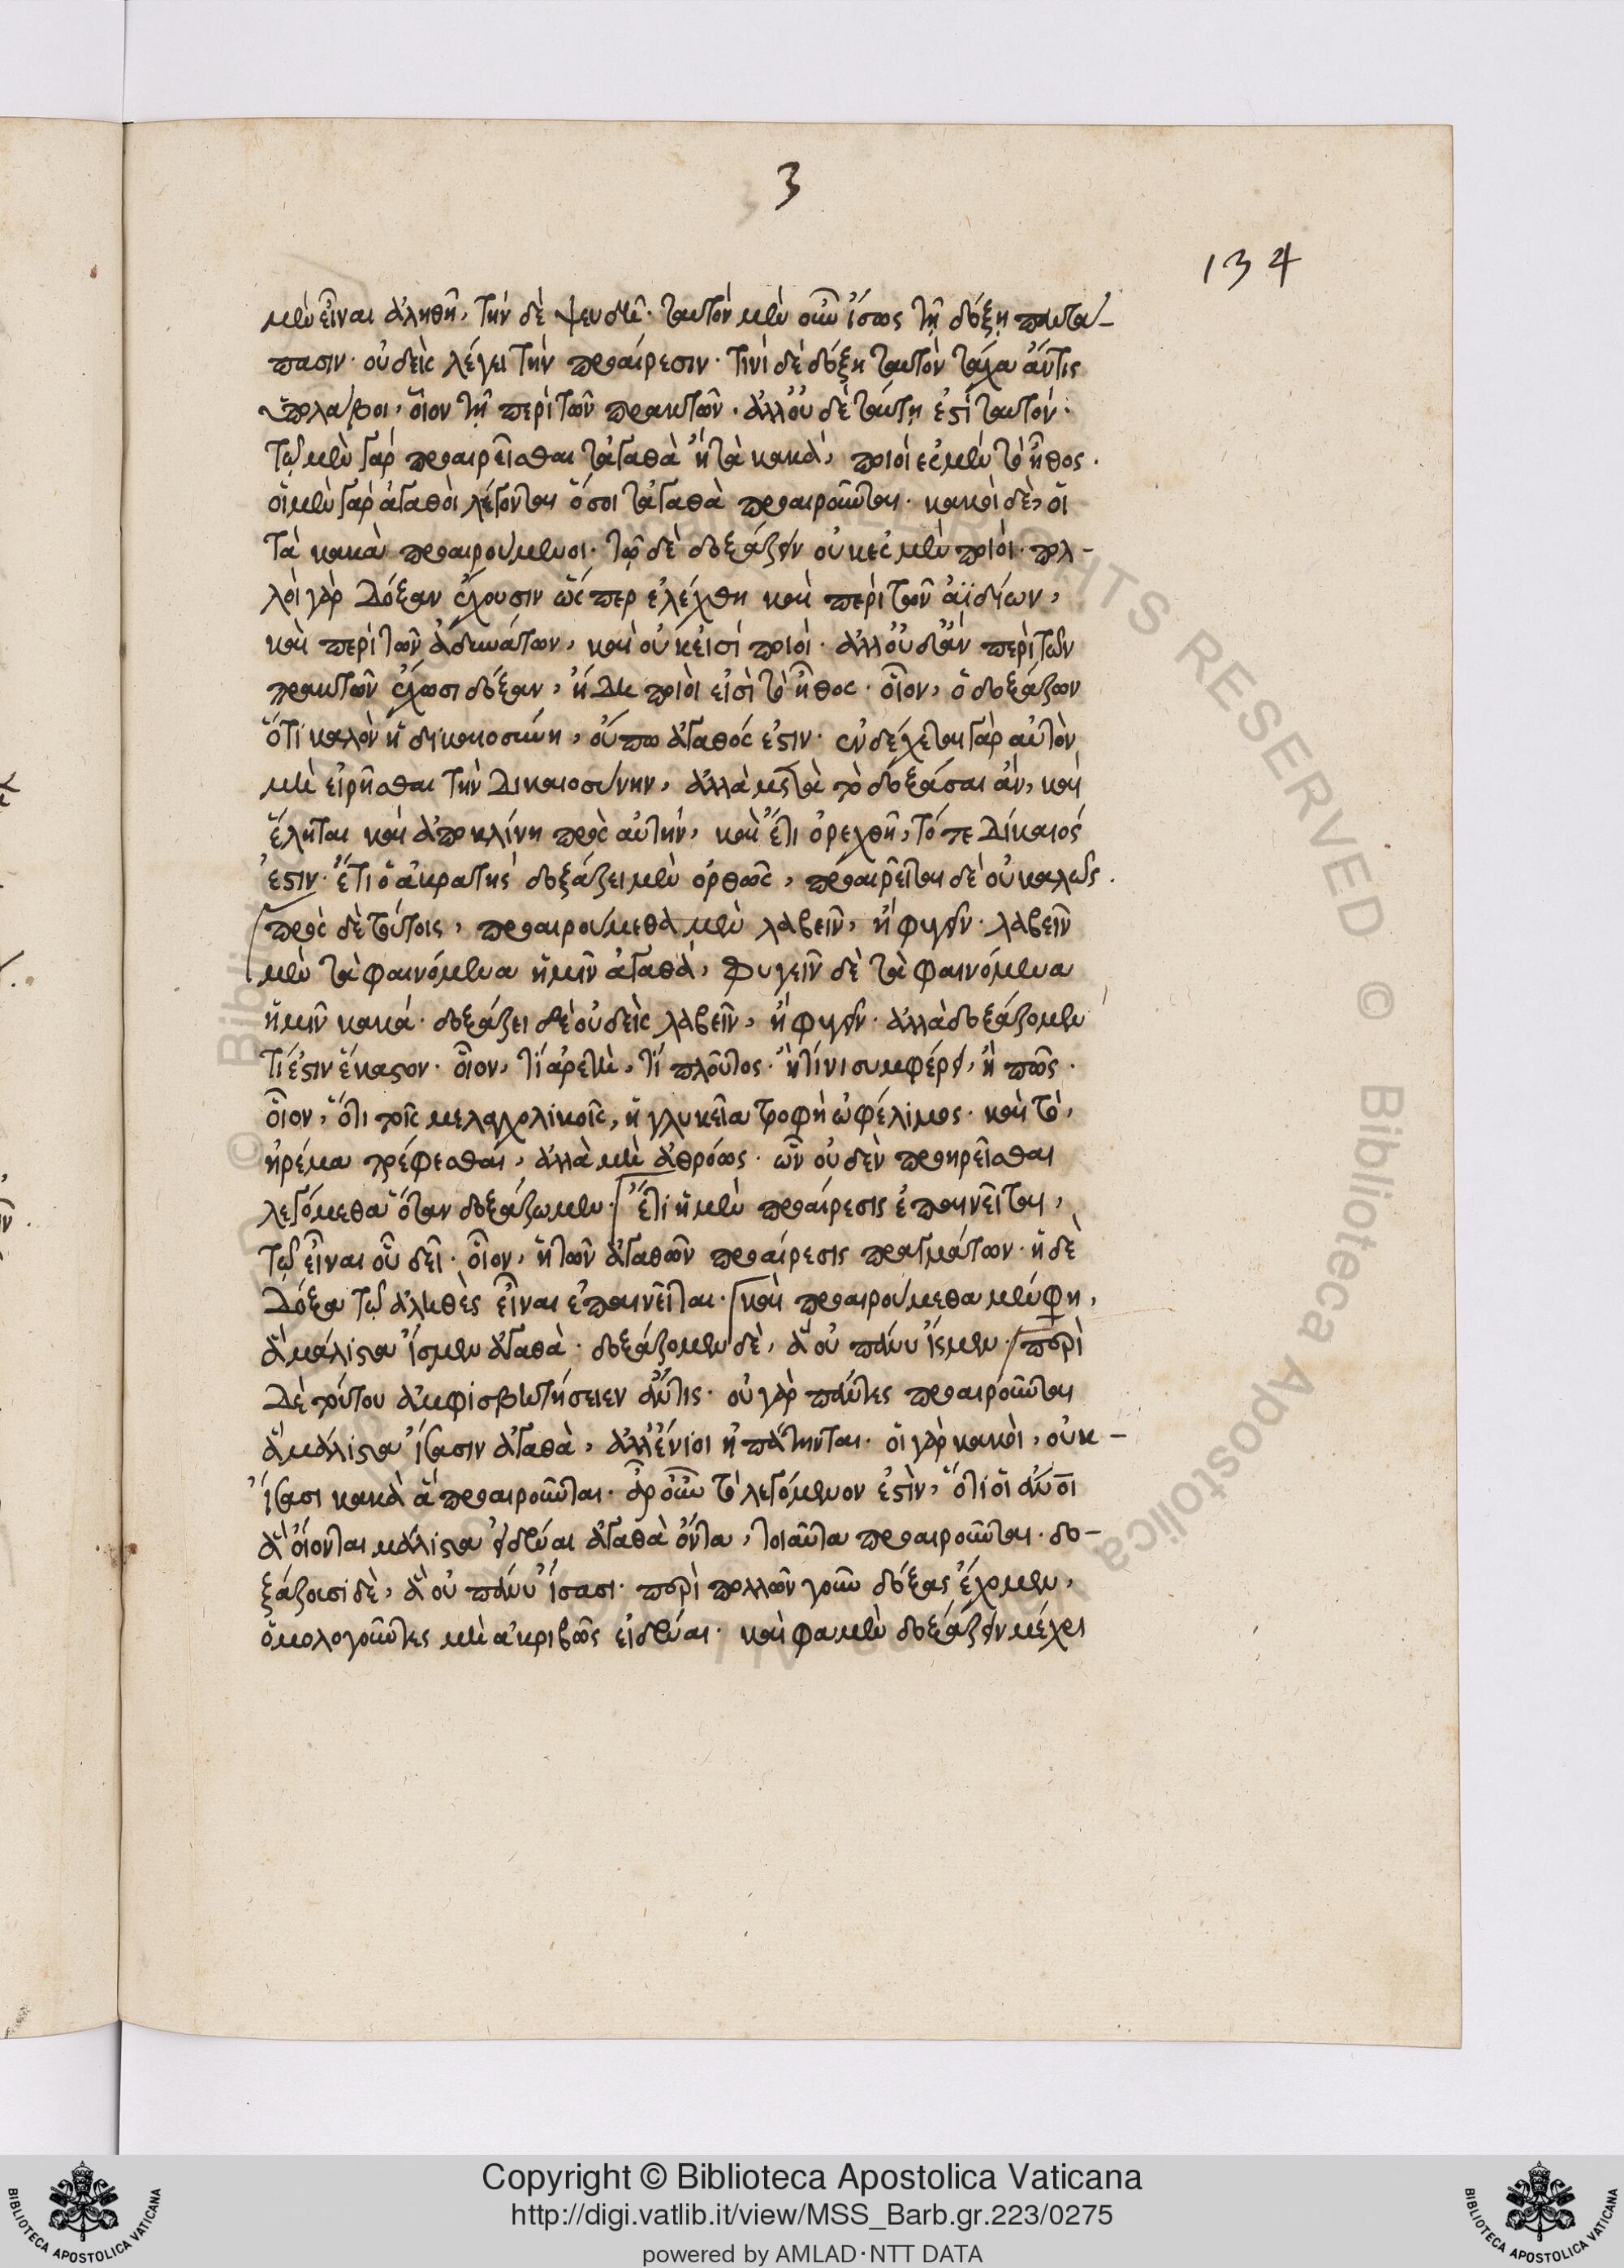 3
134
μὲν εἶναι ἀληθῆ, τὴν δὲ ψευδῆ. ταυτὸν μὲν οὖν ἴσως τῇ δόξῃ παντά-
πασιν. οὐδεὶς λέγει τὴν προαίρεσιν. τινὶ δὲ δόξῃ ταυτὸν τάχα ἄν τις
ὑπολάβοι, οἷον τῇ περὶ τῶν πρακτῶν. ἀλλ' οὐδὲ ταύτῃ ἐστὶ ταυτόν.
τῷ μὲν γὰρ προαιρεῖσθαι τἀγαθὰ ἢ τὰ κακά, ποιοί ἐσμὲν τὸ ἦθος.
οἱ μὲν γὰρ ἀγαθοὶ λέγονται ὅσοι τἀγαθὰ προαιροῦνται. κακοὶ δὲ, οἱ
τὰ κακὰ προαιρούμενοι. τῷ δὲ δοξάζειν οὐκ ἐσμὲν ποιοί. πολ-
λοὶ γὰρ δόξαν ἔχουσιν ὥσπερ ἐλέχθη καὶ περὶ τῶν ἀϊδίων,
καὶ περὶ τῶν ἀδυνάτων, καὶ οὐκ εἰσὶ ποιοί. ἀλλ' οὐδ' ἂν περὶ τῶν
πρακτῶν ἔχωσι δόξαν, ἤδη ποιοὶ εἰσὶ τὸ ἦθος. οἷον, ὁ δοξάζων
ὅτι καλὸν ἡ δικαιοσύνη, οὔπω ἀγαθός ἐστιν. ἐνδέχεται γὰρ αὐτὸν
μὴ εἰρῆσθαι τὴν δικαιοσύνην, ἀλλὰ μετὰ τὸ δοξάσαι ἂν, καὶ
ἕληται καὶ ἀποκλίνῃ πρὸς αὐτήν, καὶ ἔτι ὀρεχθῇ, τότε δίκαιός
ἐστιν. ἔτι ὁ ἀκρατὴς δοξάζει μὲν ὀρθῶς, προαιρεῖται δὲ οὐ καλῶς.
πρὸς δὲ τούτοις, προαιρούμεθα μὲν λαβεῖν, ἢ φυγεῖν. λαβεῖν
μὲν τὰ φαινόμενα ἡμῖν ἀγαθά, φυγεῖν δὲ τὰ φαινόμενα
ἡμῖν κακά. δοξάζει δὲ οὐδεὶς λαβεῖν, ἢ φυγεῖν. ἀλλὰ δοξάζομεν
τί ἐστιν ἕκαστον. οἷον, τί ἀρετή, τί πλοῦτος. ἢ τίνι συμφέρει, ἢ πῶς.
οἷον, ὅτι τοῖς μελαγχολικοῖς, ἡ γλυκεῖα τροφὴ ὠφέλιμος. καὶ τὸ,
ἠρέμα τρέφεσθαι, ἀλλὰ μὴ ἀθρόως. ὧν οὐδὲν προῃρεῖσθαι
λεγόμεθα ὅταν δοξάζωμεν. ἔτι ἡ μὲν προαίρεσις ἐπαινεῖται,
τῷ εἶναι οὗ δεῖ. οἷον, ἡ τῶν ἀγαθῶν προαίρεσις πραγμάτων. ἡ δὲ
δόξα τῷ ἀληθὲς εἶναι ἐπαινεῖται. καὶ προαιρούμεθα μέν φη,
ἃ μάλιστα ἴσμεν ἀγαθὰ. δοξάζομεν δὲ, ἃ οὐ πάνυ ἴσμεν. περὶ
δὲ τούτου ἀμφισβητήσειεν ἄν τις. οὐ γὰρ πάντες προαιροῦνται
ἃ μάλιστα ἴσασιν ἀγαθὰ, ἀλλ' ἔνιοι ἠπάτηνται. οἱ γὰρ κακοὶ, οὐκ-
ἴσασι κακὰ ἃ προαιροῦνται. ἆρ' οὖν τὸ λεγόμενον ἐστὶν, ὅτι οἱ ἄνοι
ἃ οἴονται μάλιστα εἰδέναι ἀγαθὰ ὄντα, τοιαῦτα προαιροῦνται. δο-
ξάζουσι δὲ, ἃ οὐ πάνυ ἴσασι. περὶ πολλῶν γοῦν δόξας ἔχομεν,
ὁμολογοῦντες μὴ ἀκριβῶς εἰδέναι. καὶ φαμὲν δοξάζειν μέχρι
Copyright © Biblioteca Apostolica Vaticana
http://digi.vatlib.it/view/MSS_Barb.gr.223/0275
powered by AMLAD·NTT DATA